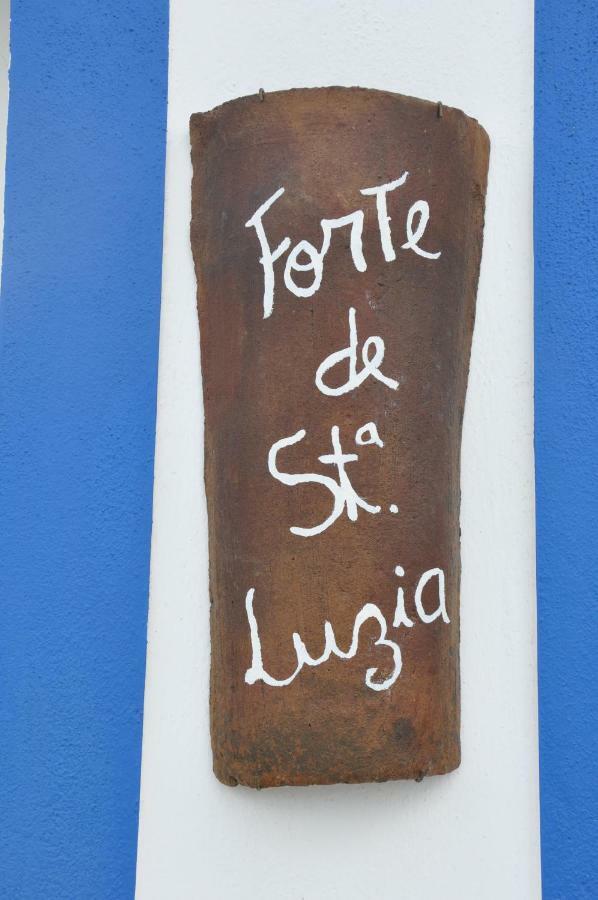 Forte
de
Stª.
Luzia